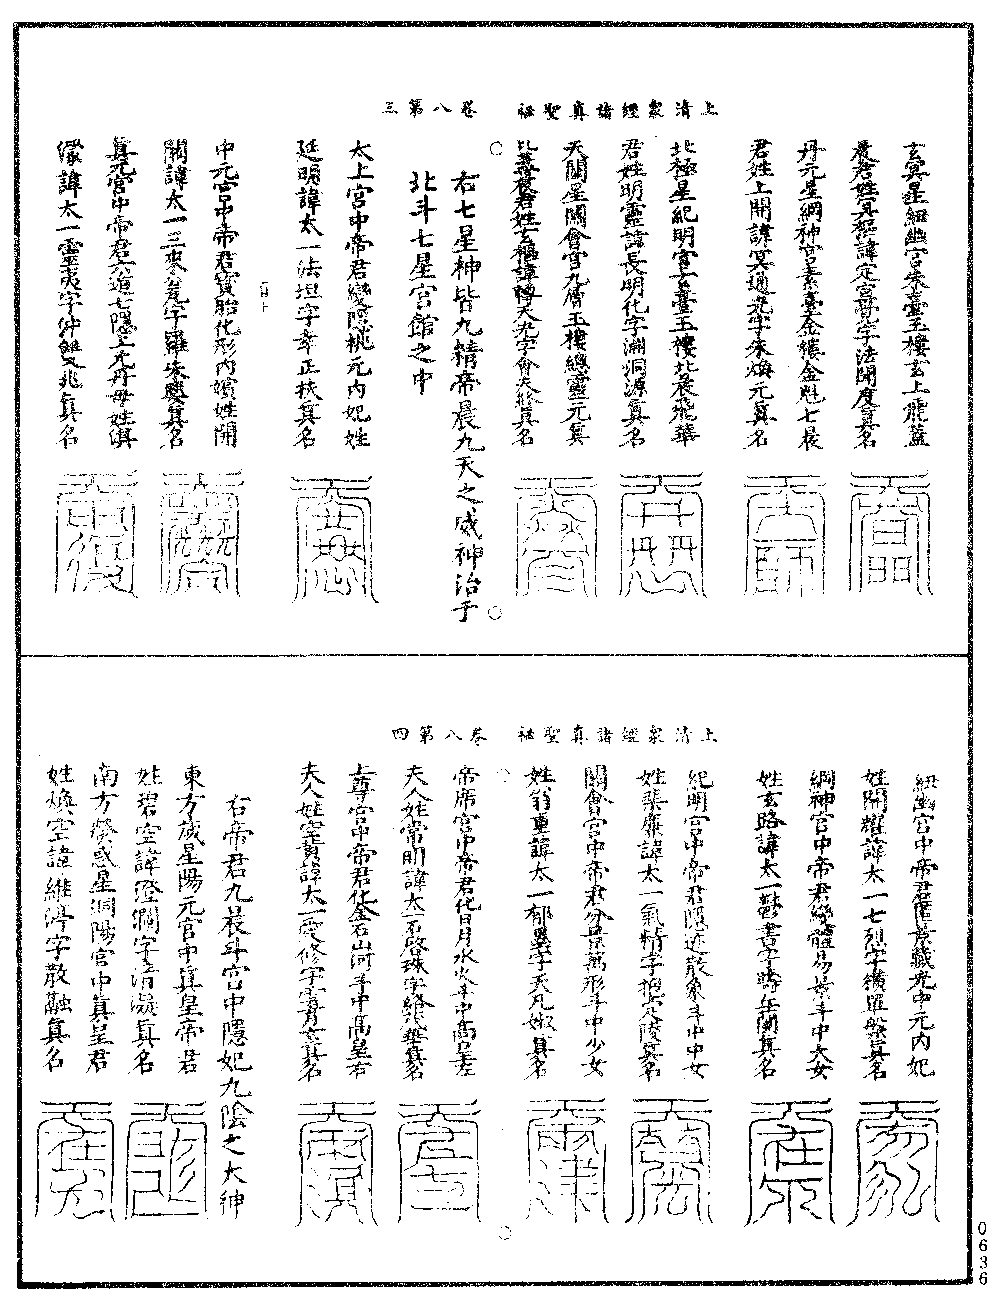 上清眾經諸真聖祕　卷八第三
玄冥星紐幽宮朱臺玉樓玄上飛蓋
晨君姓冥樞諱定宮字法開度真名
丹元星綱神宮素臺金樓金魁七晨
君姓上開諱冥通光字朱煥元真名
北極星紀明宮玄臺玉樓北晨飛華
君姓明靈諱長明化字淵洞源真名
天關星關會宮九層玉樓總靈元真
晨君姓玄樞諱轉天光字會元真名
右七星神皆九精帝晨九天之威神治于
北斗七星宮館之中
太上宮中帝君變隱逃元內妃姓
延明諱太一法坦字幸正扶真名
中元宮中帝君寶胎化形內嬪姓開
關諱太一三來字羅朱嬰真名
真元宮中帝君六遁七隱上元丹母姓淇
諱太一靈夷字沖雙兆真名
上清眾經諸真聖祕　卷八第四
紐幽宮中帝君匿景藏光中元內妃
姓開耀諱太一七烈字橫單槃真名
綱神宮中帝君變體易景斗中大女
姓玄路諱太一鬱書字時年開真名
紀明宮中帝君隱迹散象斗中中女
姓諱太一氣精字抱定陵真名
關會宮中帝君分景萬形斗中少女
姓翁重諱太一郁墨字天凡娥真名
帝席宮中帝君化日月水火斗中高皇左
夫人姓常明諱太一石啓珠字絡張華真名
上尊宮中帝君化金石山河斗中高皇右
夫人姓空寶諱太一定修字玄真名
右帝君九晨斗宮中隱妃九陰之大神
東方歲星陽元宮中真皇帝君
姓碧空諱澄瀾字清凝真名
南方熒惑星洞陽宮中真皇君
姓煥空諱維渟字散融真名
0636